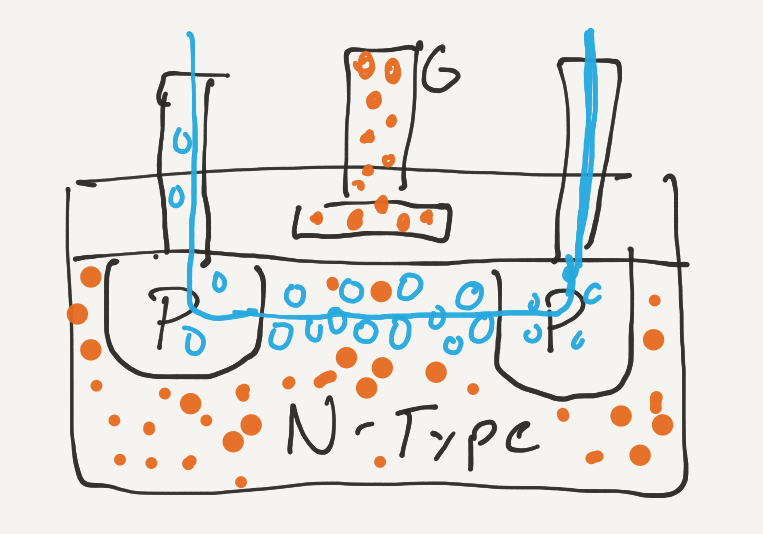 G
P P
N-Type